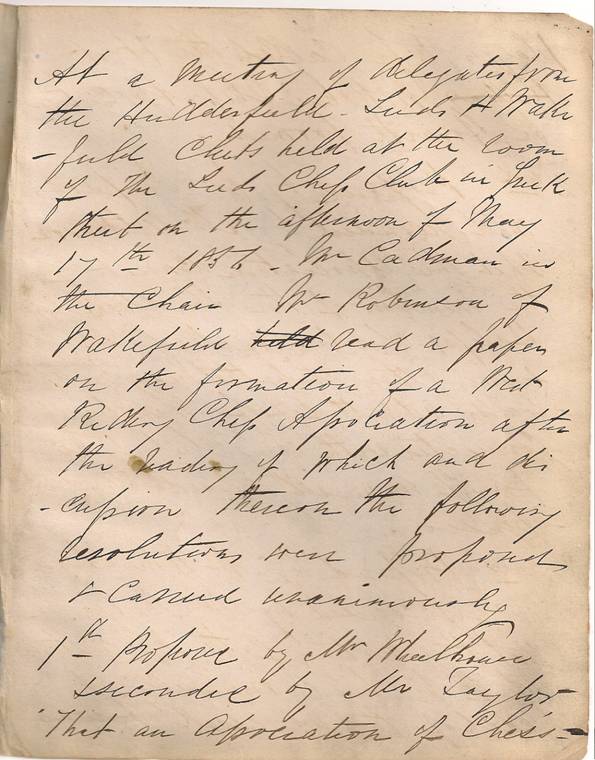 At a Meeting of delegates from
the Hudderfield - Leeds & Wake
-field Clubs held at the room
of the Leeds Chess Club in
Street on the afternoon of May
17th 1856 - Mr Cadman in
the Chair Mr Robinson of
Wakefield held read a paper
on the formation of a West
Riding Chess Association after
the reading of which and dis
-cussion thereon the following
resolutions were proposed
& carried unanimously
1st Proposed by Mr Wheelhouse
seconded by Mr Taylor
That an Association of Chess-